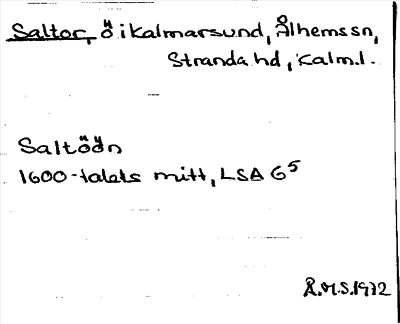 Saltor, ö i Kalmarsund, Ålhems sn,
Stranda hd, Kalm.l.
Saltöön
1600-talets mitt, LSA G5
Å.M.S.1972